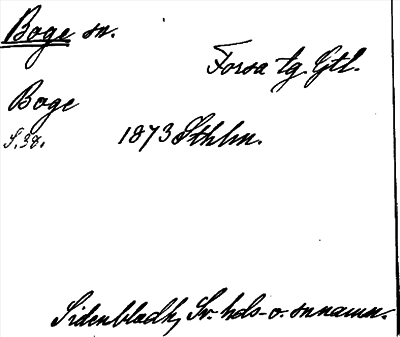 Boge sn.
Forsa tg. Gtl.
Boge
S. 38. 1873 Sthlm.
Sidenbladh, Sv. hds- o. snnamn.